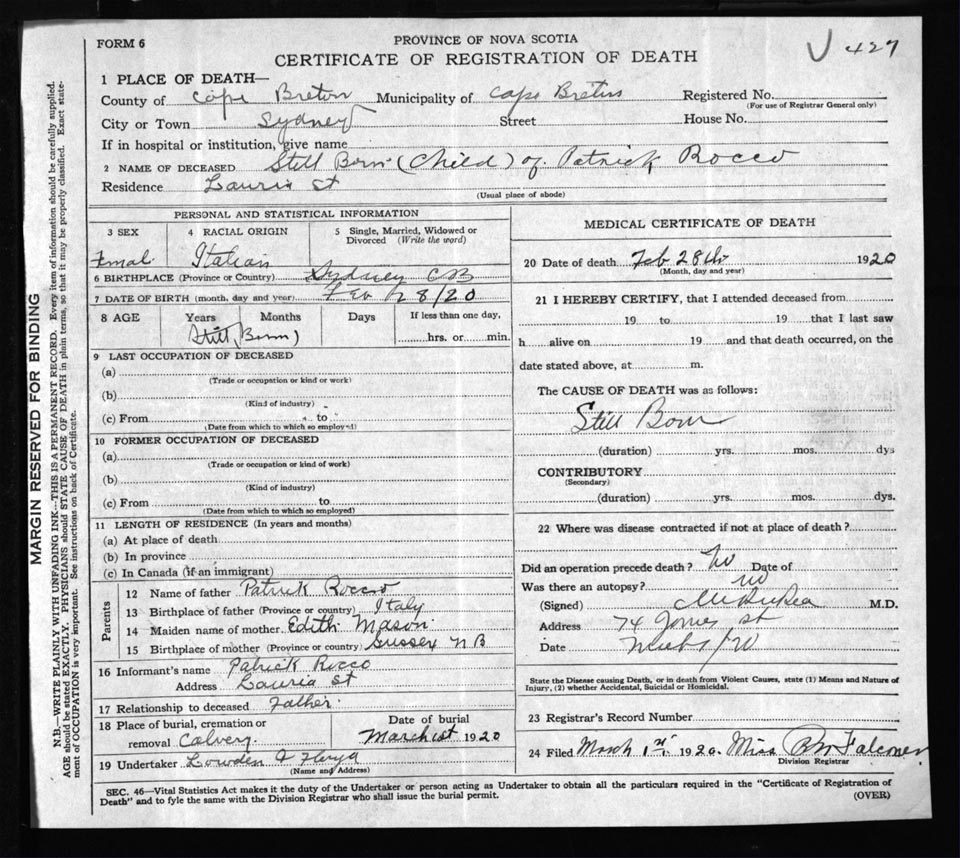 FORM 6
PROVINCE OF NOVA SCOTIA
CERTIFICATE OF REGISTRATION OF DEATH
427
1 PLACE OF DEATH—
County of Cape Breton Municipality of Cape Breton Registered No.
(For use of Registrar General only)
City or Town Sydney Street House No.
If in hospital or institution, give name
2 NAME OF DECEASED Still Born (Child) of Patrick Rocco
Residence Lauria St
(Usual place of abode)
PERSONAL AND STATISTICAL INFORMATION
3 SEX 4 RACIAL ORIGIN 5 Single, Married, Widowed or Divorced (Write the word)
Italian
6 BIRTHPLACE (Province or Country) Sydney CB
7 DATE OF BIRTH (month, day and year) Feb 28/20
8 AGE Years Months Days If less than one day,
Still Born) hrs. or min.
9 LAST OCCUPATION OF DECEASED
(a)
(Trade or occupation or kind or work)
(b)
(Kind of industry)
(c) From to
(Date from which to which so employed)
10 FORMER OCCUPATION OF DECEASED
(a)
(Trade or occupation or kind of work)
(b)
(Kind of industry)
(c) From to
(Date from which to which so employed)
11 LENGTH OF RESIDENCE (In years and months)
(a) At place of death
(b) In province
(c) In Canada (if an immigrant)
Parents
12 Name of father Patrick Rocco
13 Birthplace of father (Province or country) Italy
14 Maiden name of mother Edith Mason
15 Birthplace of mother (Province or country) Sussex N B
16 Informant's name Patrick Rocco
Address Lauria St
17 Relationship to deceased Father
18 Place of burial, cremation or Date of burial
removal Calvery. March 1st 1920
19 Undertaker Lowden & Floyd
(Name and Address)
MEDICAL CERTIFICATE OF DEATH
20 Date of death Feb 28th 1920
(Month, day and year)
21 I HEREBY CERTIFY, that I attended deceased from
19 to 19 that I last saw
h alive on 19 and that death occurred, on the
date stated above, at m.
The CAUSE OF DEATH was as follows:
Still Born
(duration) yrs. mos. dys
CONTRIBUTORY
(Secondary)
(duration) yrs. mos. dys.
22 Where was disease contracted if not at place of death?
Did an operation precede death? No Date of
Was there an autopsy? no
(Signed) M.D.
Address 74 St
Date
State the Disease causing Death, or in death from Violent Causes, state (1) Means and Nature of Injury, (2) whether Accidental, Suicidal or Homicidal.
23 Registrar's Record Number
24 Filed March 1st 1920. Miss Falconer
Division Registrar
SEC. 46—Vital Statistics Act makes it the duty of the Undertaker or person acting as Undertaker to obtain all the particulars required in the "Certificate of Registration of
Death" and to fyle the same with the Division Registrar who shall issue the burial permit.
(OVER)
MARGIN RESERVED FOR BINDING
N.B.—WRITE PLAINLY WITH UNFADING INK—THIS IS A PERMANENT RECORD. Every item of information should be carefully supplied.
AGE should be stated EXACTLY. PHYSICIANS should STATE CAUSE OF DEATH in plain terms, so that it may be properly classified. Exact state-
ment of OCCUPATION is very important. See instructions on back of Certificate.